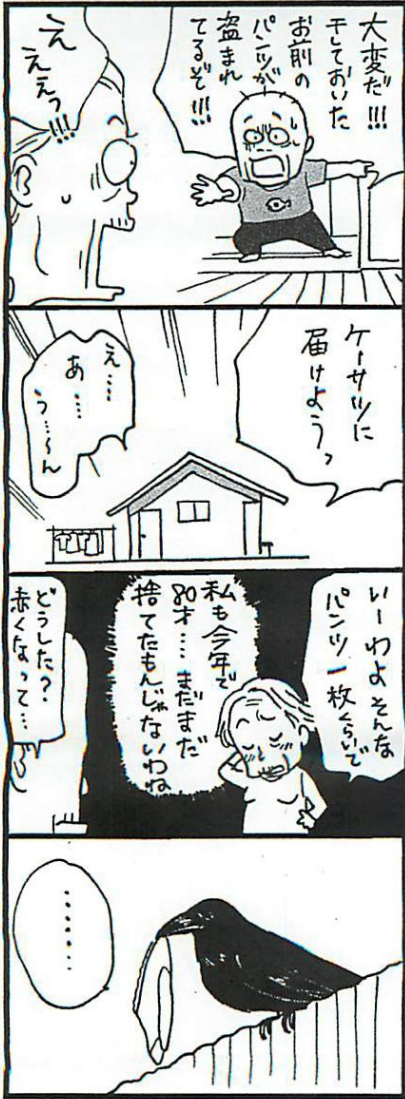 大変だ!!!
干しておいた
お前の
パンツが
盗まれ
てるぞ!!!
え
ええっ!!!
ケーサツに
届けようっ
え……
あ……
う…〜ん
いーわよそんな
パンツ一枚くらいで
私も今年で
80才……まだまだ
捨てたもんじゃないわね
どうした?
赤くなって…
………